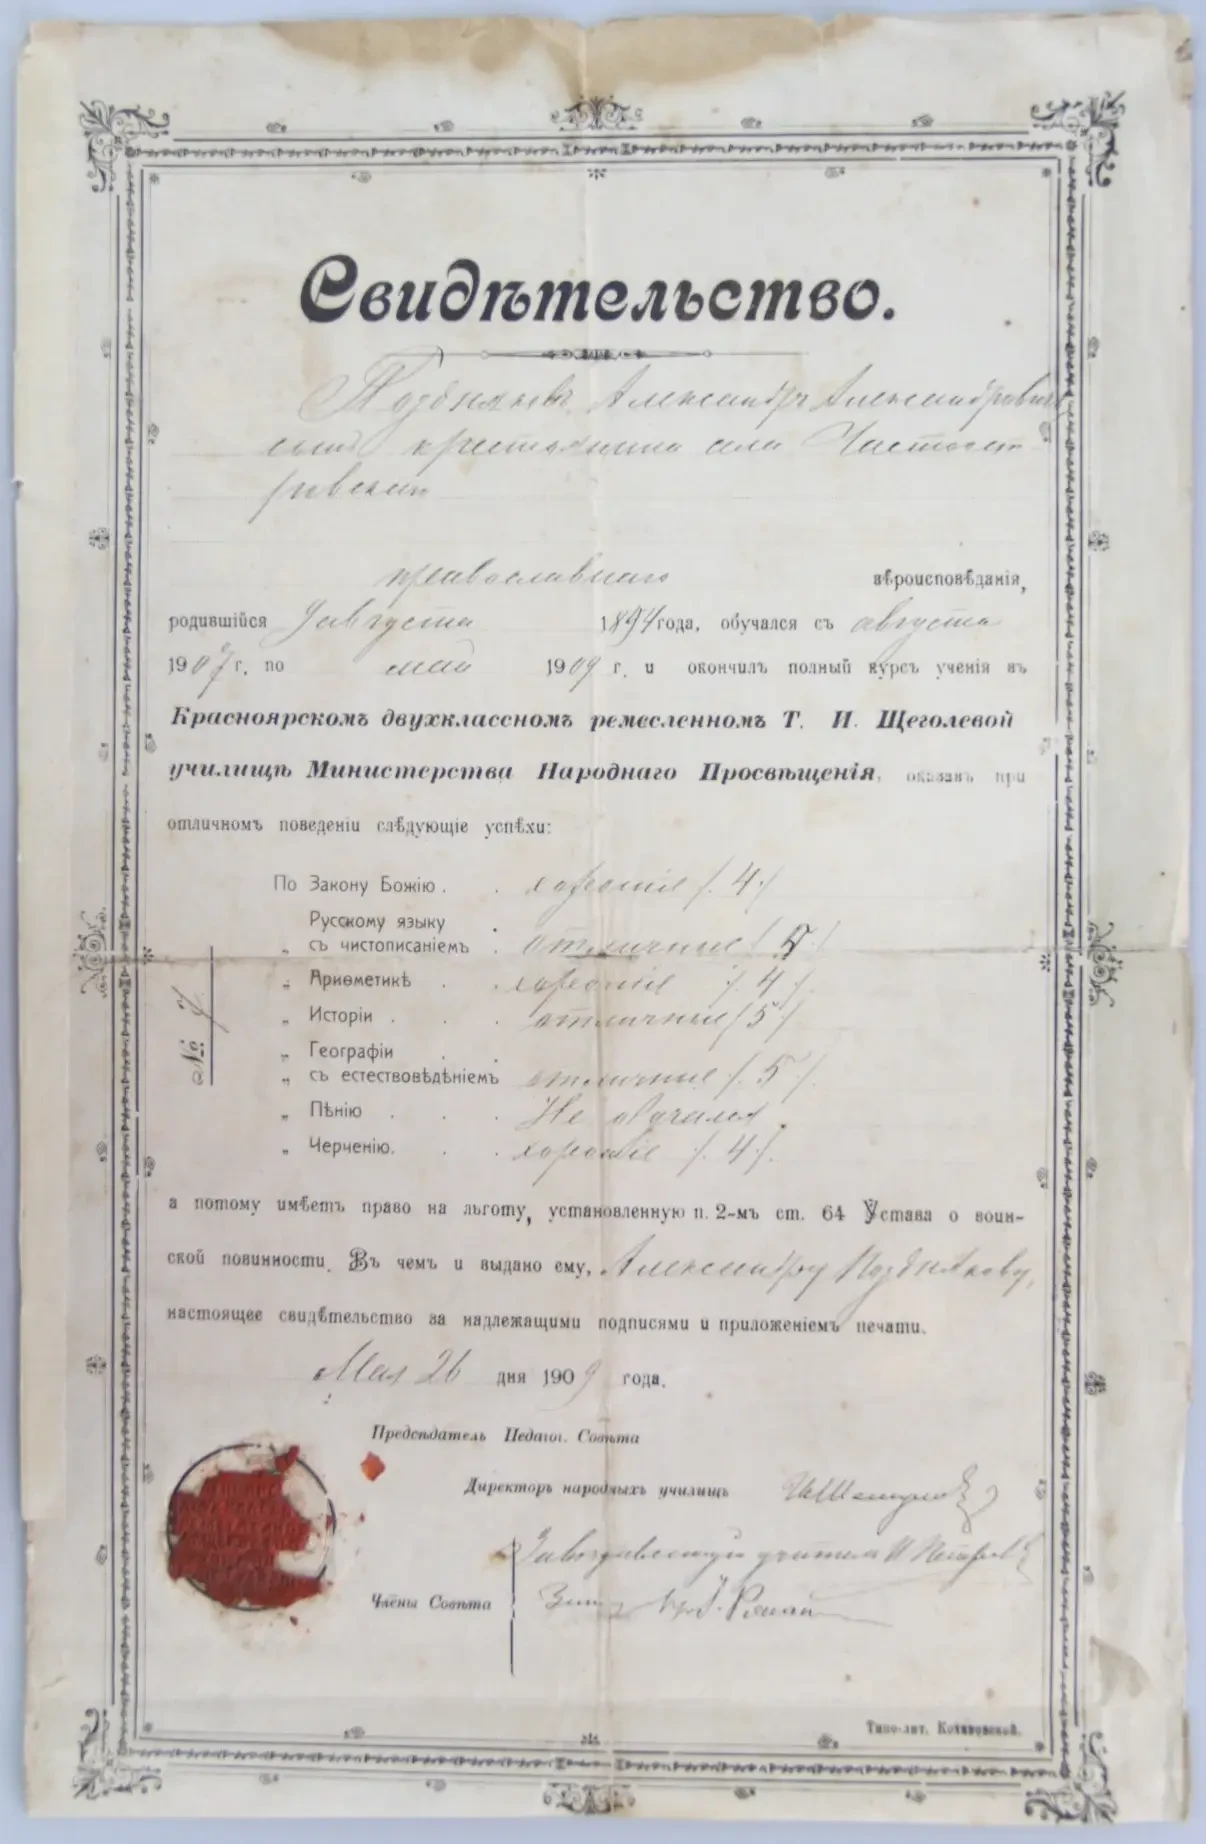 Свидѣтельство.
Поздняковъ Александръ Александровичъ
сынъ крестьянина села Частоост-
ровскаго
православнаго вѣроисповѣданія,
родившійся 9 августа 1894 года, обучался съ августа
1907 г. по май 1909 г. и окончилъ полный курсъ ученія въ
Красноярскомъ двухклассномъ ремесленномъ Т. И. Щеголевой
училищѣ Министерства Народнаго Просвѣщенія, оказавъ при
отличномъ поведеніи слѣдующіе успѣхи:
По Закону Божію . . хорошіе /. 4 ./
Русскому языку
„ съ чистописаніемъ . отличные /. 5 ./
„ Ариѳметикѣ . . хорошіе /. 4 /.
„ Исторіи . . . отличные /. 5 ./
„ Географіи . .
„ съ естествовѣдѣніемъ отличные /. 5 /.
„ Пѣнію . . . Не обучался.
„ Черченію. . . хорошіе /. 4 /.
№ 7
а потому имѣетъ право на льготу, установленную п. 2-мъ ст. 64 Устава о воин-
ской повинности. Въ чемъ и выдано ему, Александру Позднякову,
настоящее свидѣтельство за надлежащими подписями и приложеніемъ печати.
Мая 26 дня 1909 года.
Предсѣдатель Педагог. Совѣта
Директоръ народныхъ училищъ
Завѣдывающій учитель И Петровъ
Члены Совѣта
Типо-лит. Кохановской.